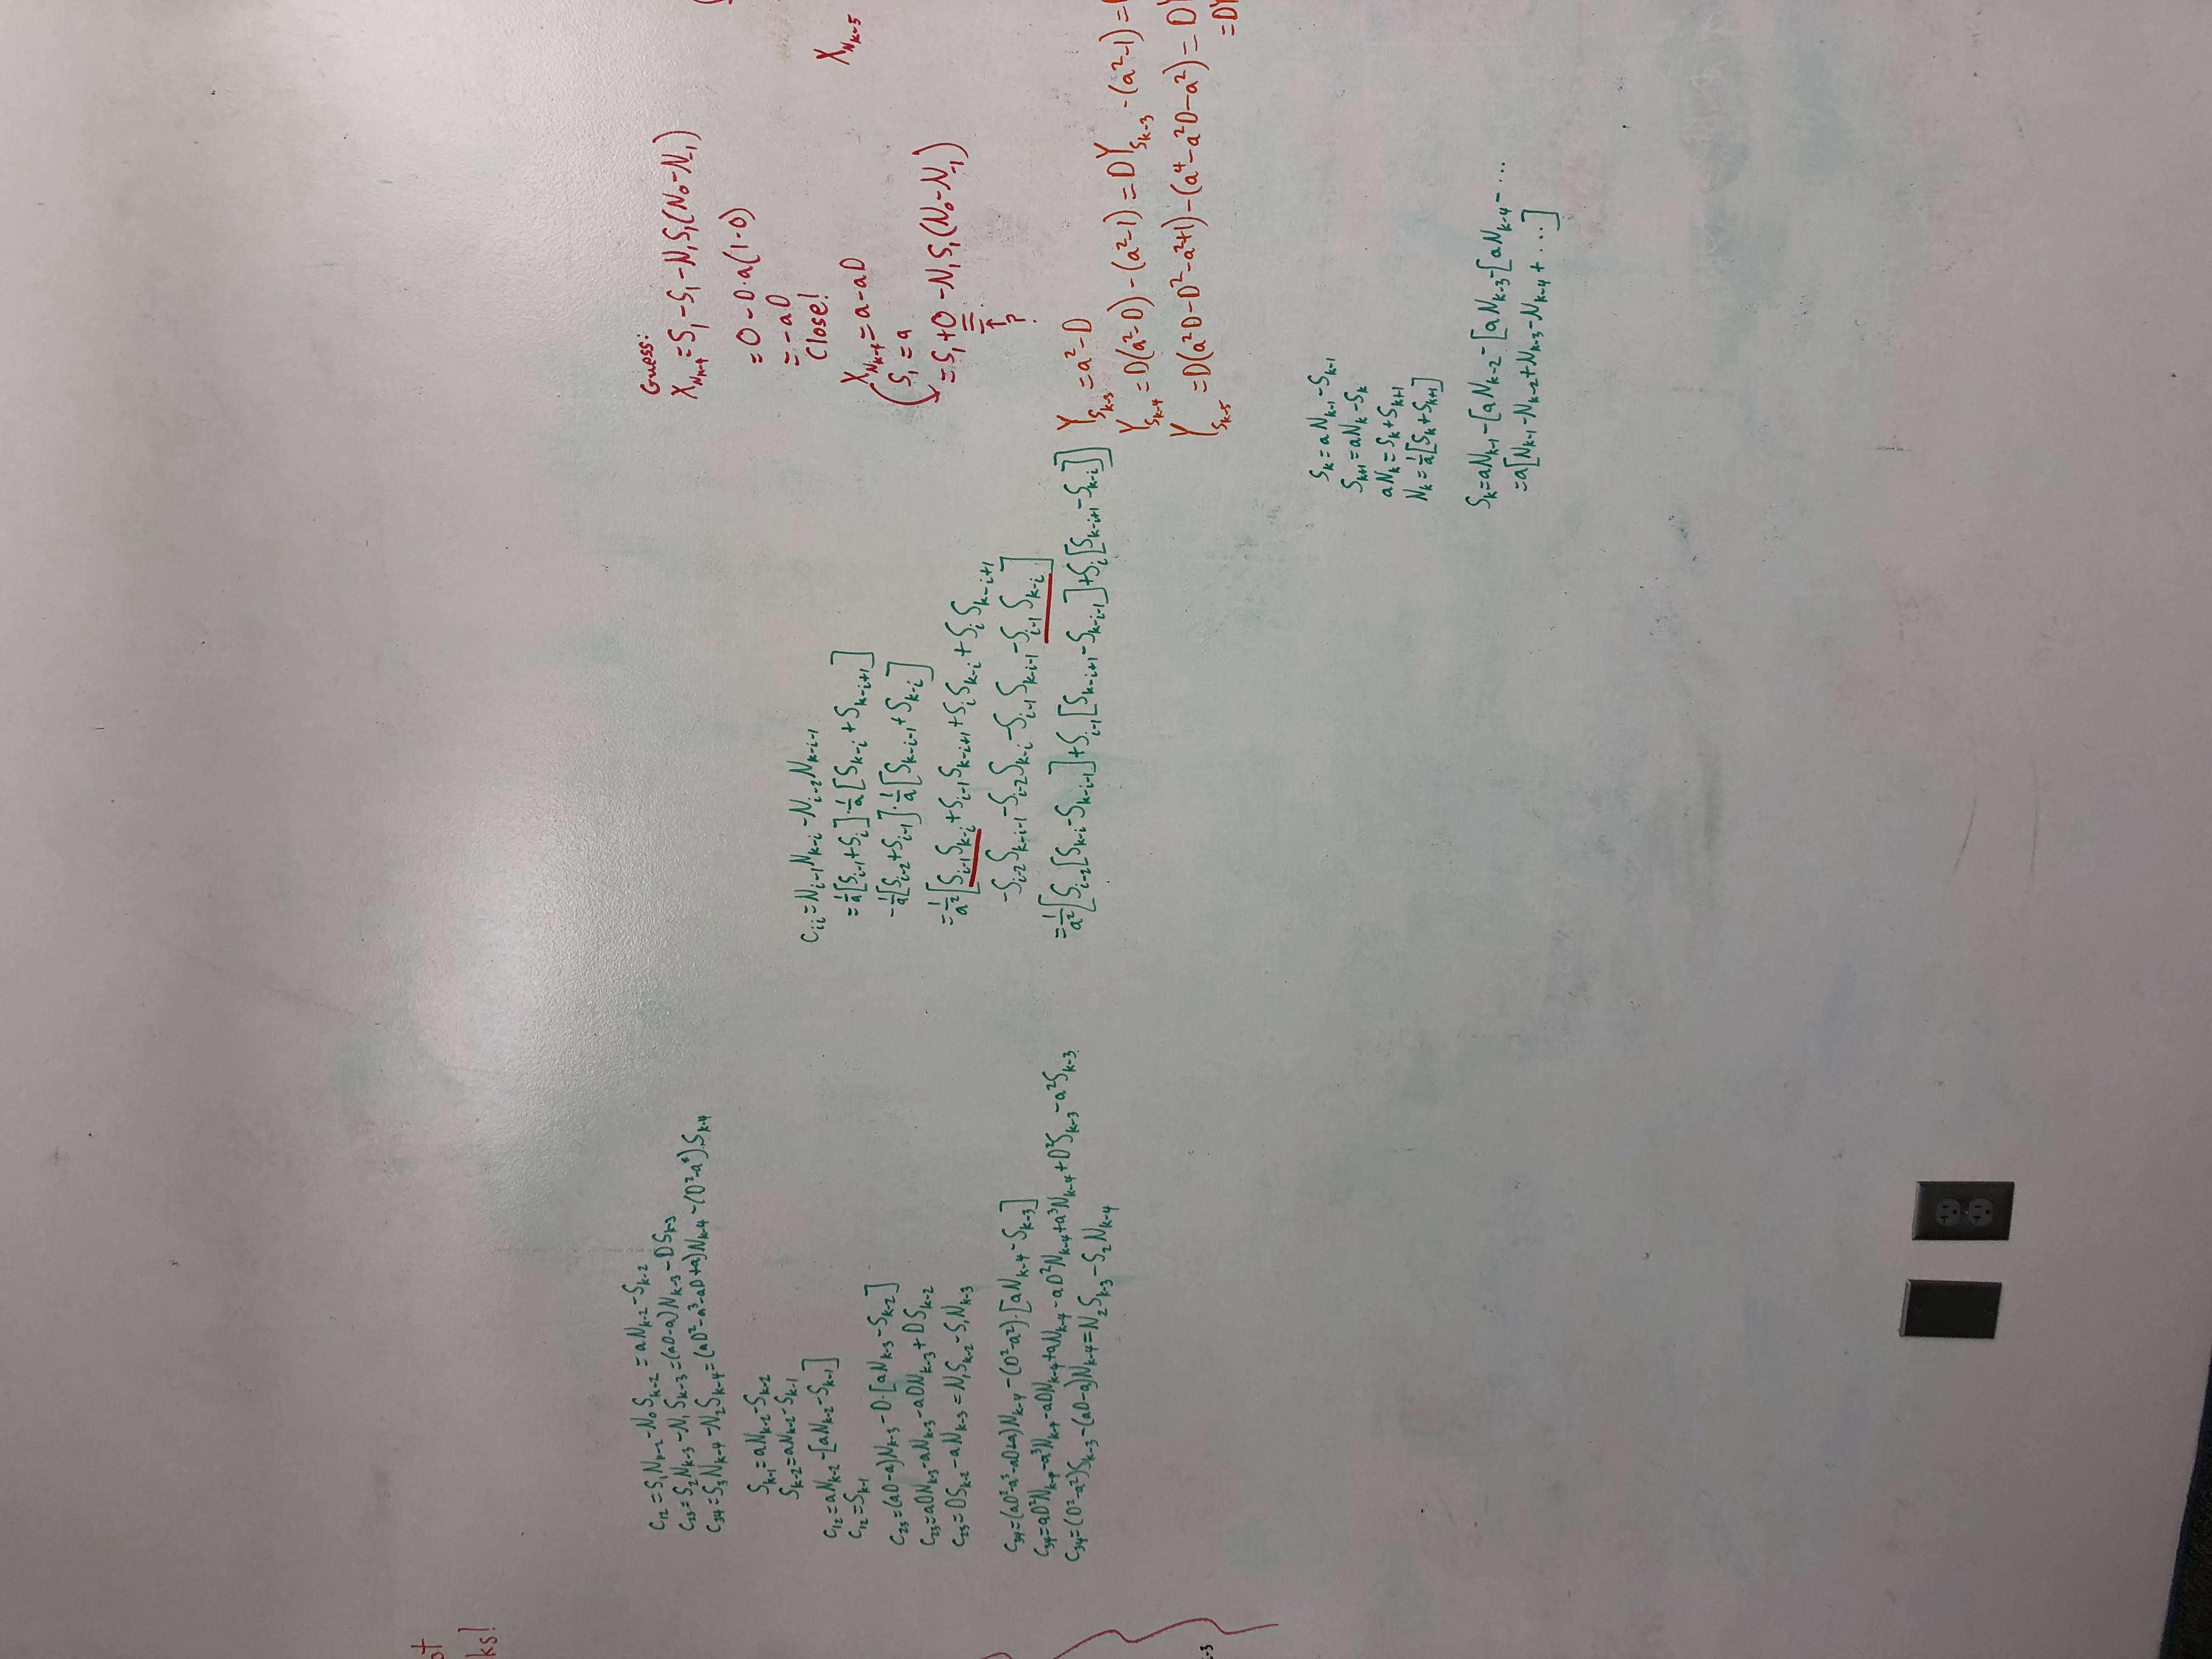 ot
ks!
c₁₂ = S₁N_{k-2} - N₀S_{k-2} = aN_{k-2} - S_{k-2}
c₂₃ = S₂N_{k-3} - N₁S_{k-3} = (aD-a)N_{k-3} - DS_{k-3}
c₃₄ = S₃N_{k-4} - N₂S_{k-4} = (aD²-a³-aD+a)N_{k-4} - (D²-a²)S_{k-4}
S_{k-1} = aN_{k-2} - S_{k-2}
S_{k-2} = aN_{k-2} - S_{k-1}
c₁₂ = aN_{k-2} - [aN_{k-2} - S_{k-1}]
c₁₂ = S_{k-1}
c₂₃ = (aD-a)N_{k-3} - D·[aN_{k-3} - S_{k-2}]
c₂₃ = aDN_{k-3} - aN_{k-3} - aDN_{k-3} + DS_{k-2}
c₂₃ = DS_{k-2} - aN_{k-3} = N₁S_{k-2} - S₁N_{k-3}
c₃₄ = (aD²-a³-aD+a)N_{k-4} - (D²-a²)·[aN_{k-4} - S_{k-3}]
c₃₄ = aD²N_{k-4} - a³N_{k-4} - aDN_{k-4} + aN_{k-4} - aD²N_{k-4} + a³N_{k-4} + D²S_{k-3} - a²S_{k-3}
c₃₄ = (D²-a²)S_{k-3} - (aD-a)N_{k-4} = N₂S_{k-3} - S₂N_{k-4}
-3
c_{ii} = N_{i-1}N_{k-i} - N_{i-2}N_{k-i-1}
= 1/a [S_{i-1} + S_i] · 1/a [S_{k-i} + S_{k-i+1}]
- 1/a [S_{i-2} + S_{i-1}] · 1/a [S_{k-i-1} + S_{k-i}]
= 1/a² [S_{i-1}S_{k-i} + S_{i-1}S_{k-i+1} + S_iS_{k-i} + S_iS_{k-i+1}
- S_{i-2}S_{k-i-1} - S_{i-2}S_{k-i} - S_{i-1}S_{k-i-1} - S_{i-1}S_{k-i}]
= 1/a² [S_{i-2}[S_{k-i} - S_{k-i-1}] + S_{i-1}[S_{k-i+1} - S_{k-i-1}] + S_i[S_{k-i+1} - S_{k-i}]]
Guess:
X_{N_{k-4}} = S₁ - S₁ - N₁S₁(N₀ - N_{-1})
= 0 - D·a(1-0)
= -aD
Close!
X_{N_{k-4}} = a - aD
S₁ = a
= S₁ + 0 - N₁S₁(N₀ - N_{-1})
↑
?
X_{N_{k-5}}
Y_{S_{k-3}} = a² - D
Y_{S_{k-4}} = D(a²-D) - (a²-1) = DY_{S_{k-3}} - (a²-1) =
Y_{S_{k-5}} = D(a²D - D² - a² + 1) - (a⁴ - a²D - a²) = DY
= DY
S_k = aN_{k-1} - S_{k-1}
S_{k+1} = aN_k - S_k
aN_k = S_k + S_{k+1}
N_k = 1/a [S_k + S_{k+1}]
S_k = aN_{k-1} - [aN_{k-2} - [aN_{k-3} - [aN_{k-4} - ...
= a[N_{k-1} - N_{k-2} + N_{k-3} - N_{k-4} + ...]